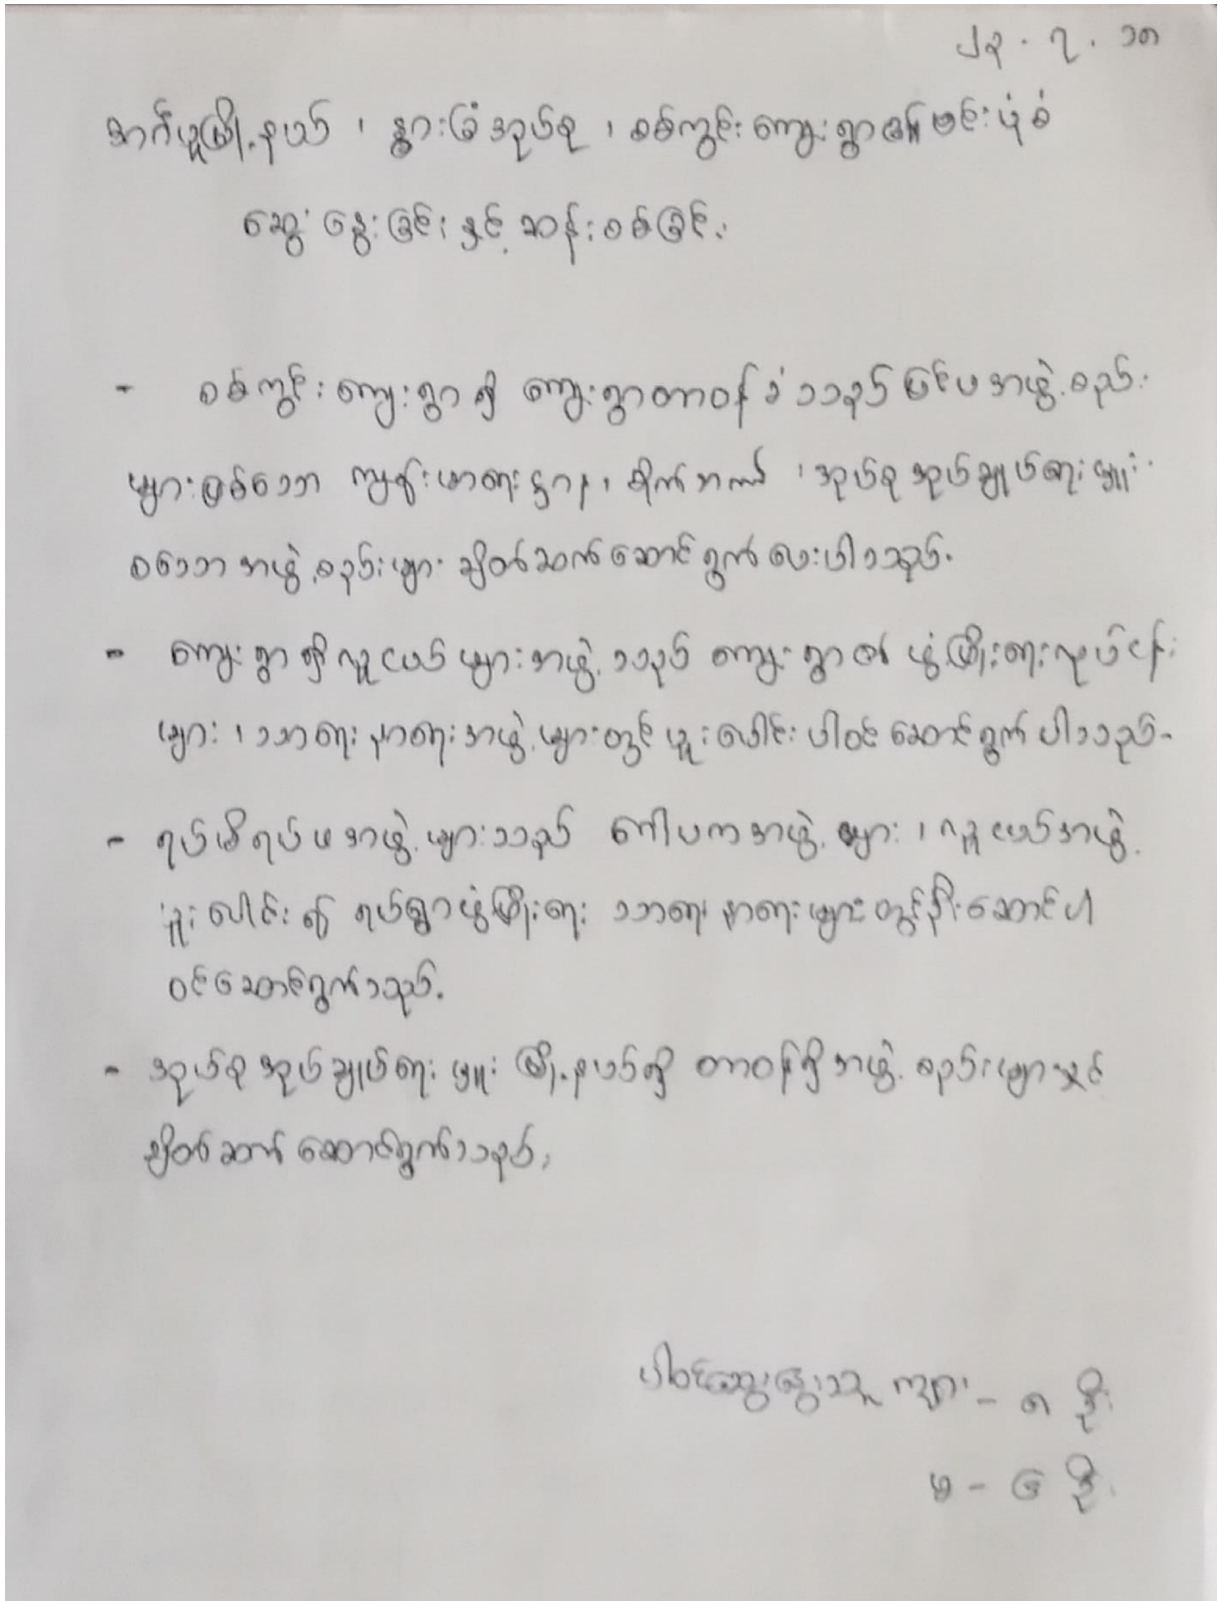 ၂၃ . ၇ . ၁၈
အင်္ဂပူမြို့နယ် ၊ နွားခြံအုပ်စု ၊ စစ်ကွင်းကျေးရွာ၏ ဗင်းပုံစံ
ဆွေးနွေးခြင်းနှင့် ဆန်းစစ်ခြင်း
- စစ်ကွင်းကျေးရွာရှိ ကျေးရွာတာဝန်ခံသည် ပြင်ပအဖွဲ့စည်း
များဖြစ်သော ကျန်းမာရေးဌာန၊ စိုက် ၊ အုပ်စုအုပ်ချုပ်ရေးမှူး
စသော အဖွဲ့စည်းများ ချိတ်ဆက်ဆောင်ရွက်ပေးပါသည်။
- ကျေးရွာရှိလူငယ်များအဖွဲ့သည် ကျေးရွာ၏ ဖွံ့ဖြိုးရေးလုပ်ငန်း
များ ၊ သာရေးနာရေးအဖွဲ့များတွင် ပူးပေါင်းပါဝင်ဆောင်ရွက်ပါသည်။
- ရပ်မိရပ်ဖအဖွဲ့များသည် ဂေါပကအဖွဲ့များ ၊ လူငယ်အဖွဲ့
ပူးပေါင်း၍ ရပ်ရွာဖွံ့ဖြိုးရေး သာရေးနာရေးများတွင် ဦးဆောင်ပါ
ဝင်ဆောင်ရွက်သည်။
- အုပ်စုအုပ်ချုပ်ရေးမှူး မြို့နယ်ရှိ တာဝန်ရှိအဖွဲ့စည်းများနှင့်
ချိတ်ဆက်ဆောင်ရွက်သည်။
ပါဝင်ဆွေးနွေးသူ ကျား - ၈ ဦး
မ - ၆ ဦး